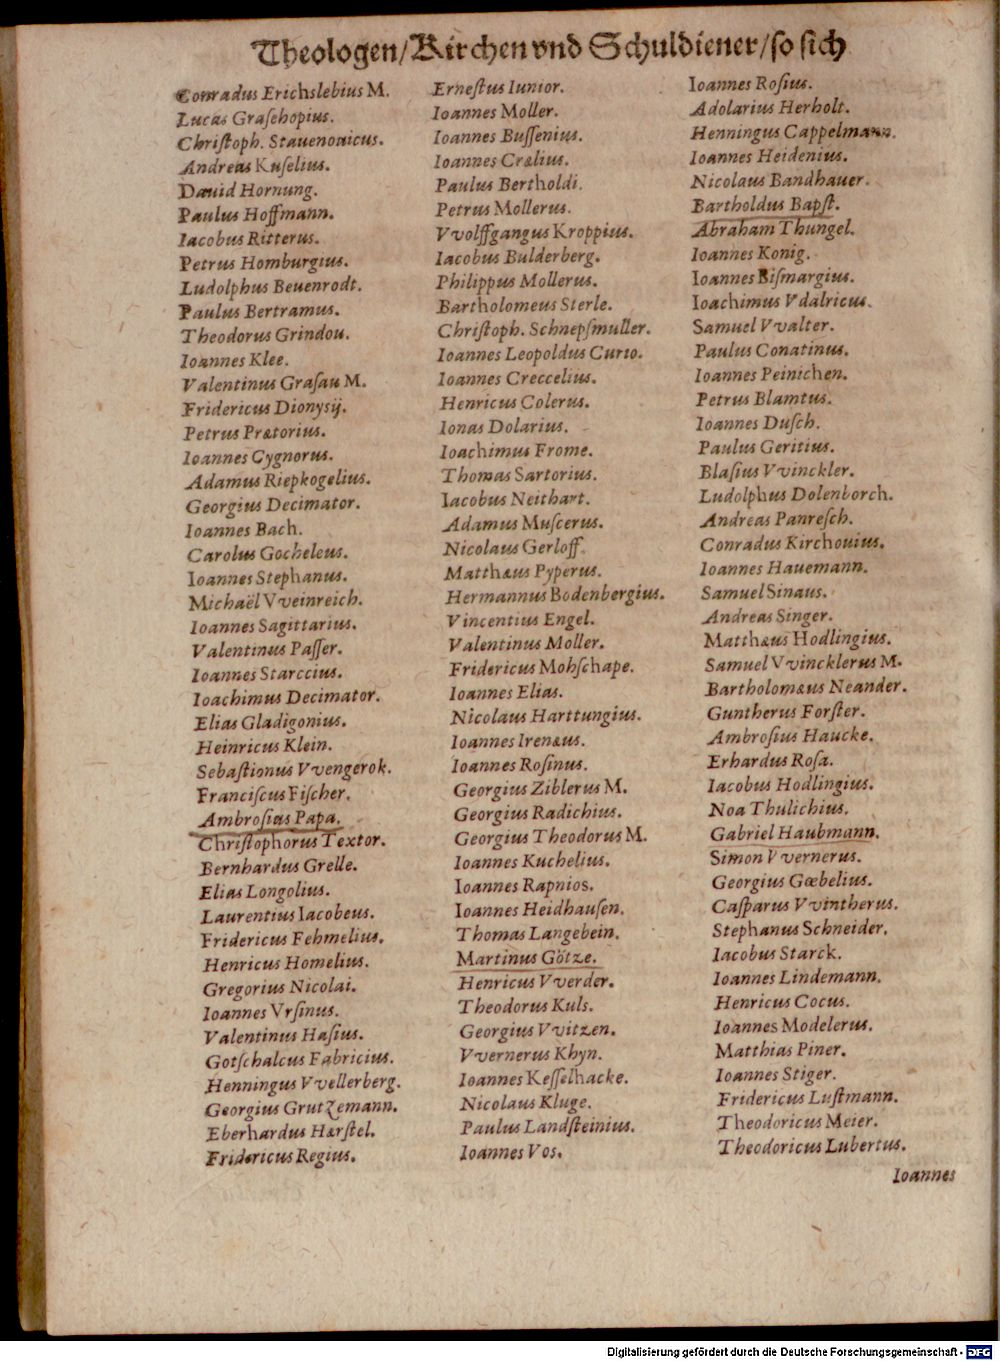 Theologen/Kirchen vnd Schuldiener/so sich
Conradus Erichslebius M.
Lucas Graſehopius.
Chriſtoph. Stauenouicus.
Andreas Kuſelius.
Dauid Hornung.
Paulus Hoffmann.
Iacobus Ritterus.
Petrus Homburgius.
Ludolphus Beuenrodt.
Paulus Bertramus.
Theodorus Grindou.
Ioannes Klee.
Valentinus Graſau M.
Fridericus Dionyſij.
Petrus Prætorius.
Ioannes Cygnorus.
Adamus Riepkogelius.
Georgius Decimator.
Ioannes Bach.
Carolus Gocheleus.
Ioannes Stephanus.
Michaël Vveinreich.
Ioannes Sagittarius.
Valentinus Paſſer.
Ioannes Starccius.
Ioachimus Decimator.
Elias Gladigonius.
Heinricus Klein.
Sebaſtionus Vvengerok.
Franciſcus Fiſcher.
Ambroſius Papa.
Chriſtophorus Textor.
Bernhardus Grelle.
Elias Longolius.
Laurentius Iacobeus.
Fridericus Fehmelius.
Henricus Homelius.
Gregorius Nicolai.
Ioannes Vrſinus.
Valentinus Haſius.
Gotſchalcus Fabricius.
Henningus Vvellerberg.
Georgius Grutzemann.
Eberhardus Hærſtel.
Fridericus Regius.
Erneſtus Iunior.
Ioannes Moller.
Ioannes Buſſenius.
Ioannes Crælius.
Paulus Bertholdi.
Petrus Mollerus.
Vvolffgangus Kroppius.
Iacobus Bulderberg.
Philippus Mollerus.
Bartholomeus Sterle.
Chriſtoph. Schnepſmuller.
Ioannes Leopoldus Curio.
Ioannes Creccelius.
Henricus Colerus.
Ionas Dolarius.
Ioachimus Frome.
Thomas Sartorius.
Iacobus Neithart.
Adamus Muſcerus.
Nicolaus Gerloff.
Matthæus Pyperus.
Hermannus Bodenbergius.
Vincentius Engel.
Valentinus Moller.
Fridericus Mohſchape.
Ioannes Elias.
Nicolaus Harttungius.
Ioannes Irenæus.
Ioannes Roſinus.
Georgius Ziblerus M.
Georgius Radichius.
Georgius Theodorus M.
Ioannes Kuchelius.
Ioannes Rapnios.
Ioannes Heidhauſen.
Thomas Langebein.
Martinus Götze.
Henricus Vverder.
Theodorus Kuls.
Georgius Vvitzen.
Vvernerus Khyn.
Ioannes Keſſelhacke.
Nicolaus Kluge.
Paulus Landſteinius.
Ioannes Vos.
Ioannes Roſius.
Adolarius Herholt.
Henningus Cappelmann.
Ioannes Heidenius.
Nicolaus Bandhauer.
Bartholdus Bapſt.
Abraham Thungel.
Ioannes Konig.
Ioannes Biſmargius.
Ioachimus Vdalricus.
Samuel Vvalter.
Paulus Conatinus.
Ioannes Peinichen.
Petrus Blamtus.
Ioannes Duſch.
Paulus Geritius.
Blaſius Vvinckler.
Ludolphus Dolenborch.
Andreas Panreſch.
Conradus Kirchouius.
Ioannes Hauemann.
Samuel Sinaus.
Andreas Singer.
Matthæus Hodlingius.
Samuel Vvincklerus M.
Bartholomæus Neander.
Guntherus Forſter.
Ambroſius Haucke.
Erhardus Roſa.
Iacobus Hodlingius.
Noa Thulichius.
Gabriel Haubmann.
Simon Vvernerus.
Georgius Gœbelius.
Caſparus Vvintherus.
Stephanus Schneider.
Iacobus Starck.
Ioannes Lindemann.
Henricus Cocus.
Ioannes Modelerus.
Matthias Piner.
Ioannes Stiger.
Fridericus Luſtmann.
Theodoricus Meier.
Theodoricus Lubertus.
Ioannes
Digitalisierung gefördert durch die Deutsche Forschungsgemeinschaft - DFG